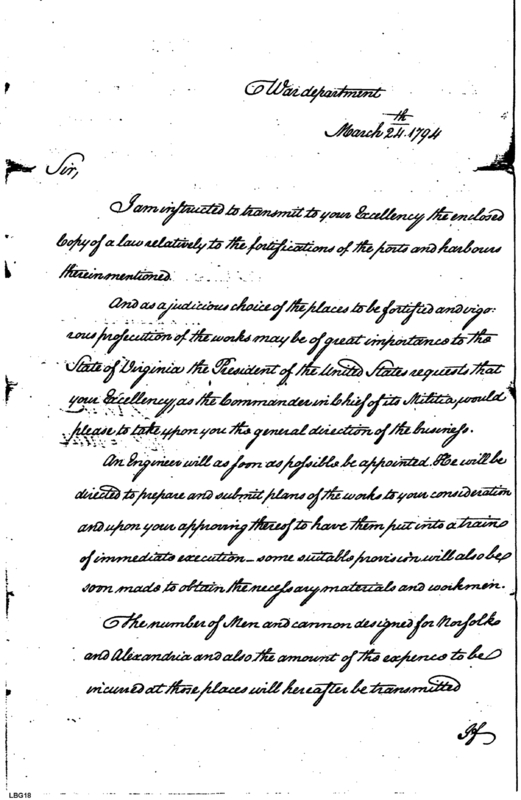 War department
March 24th 1794
Sir,
I am instructed to transmit to your Excellency the enclosed
Copy of a law relatively to the fortifications of the ports and harbours
therein mentioned.
And as a judicious choice of the places to be fortified and vigo:
rous prosecution of the works may be of great importance to the
State of Virginia the President of the United States requests that
your Excellency, as the Commander in Chief of its Militia, would
please to take upon you the general direction of the business.
An Engineer will as soon as possible be appointed. He will be
directed to prepare and submit plans of the works to your consideration
and upon your approving thereof to have them put into a train
of immediate execution – some suitable provision will also be
soon made to obtain the necessary materials and workmen.
The number of Men and cannon designed for Norfolk
and Alexandria and also the amount of the expence to be
incurred at those places will hereafter be transmitted
If
LBG18